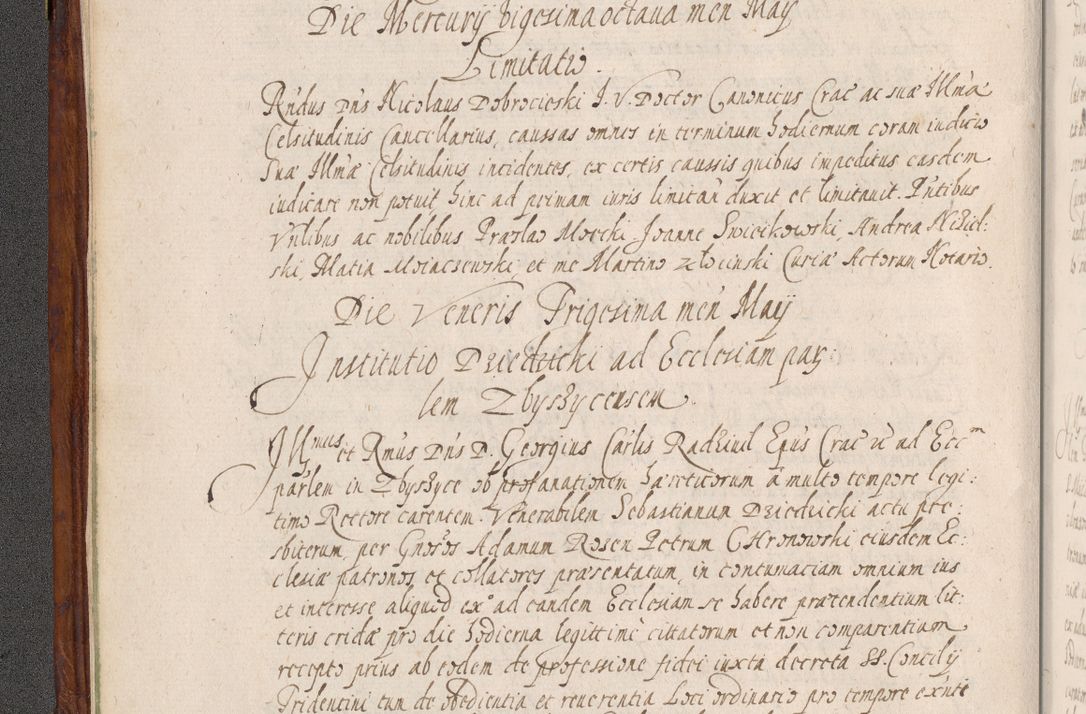 Die Mercurÿ vigesima octaua men May
Limitatio.
Rndus Dns Nicolaus Dobrocieski J. V. Doctor Canonicus Crac ac suæ Illmæ
Celsitudinis Cancellarius, caussas omnes in terminum hodiernum coram iudicio
Suæ Illmæ Celsitudinis incidentes, ex certis caussis quibus impeditus easdem
iudicare non potuit hinc ad primam iuris limitan duxit et limitauit. Pntibus
Vnlibus ac nobilibus Praslao Mocchi, Joanne Swiecikowski, Andrea
ski, Matia et me Martino Złocinski Curiæ Actorum Notario.
Die Veneris Trigesima men Maÿ
Institutio Dzieduchi ad Ecclesiam par:
lem Zbyszycensem.
Illmus et Rmus Dns D. Georgius Carlis Radziuil Epus Crac ad Eccm
parlem in Zbyszyce ob profanationem hæreticorum a multo tempore legi:
timo Rectore carentem. Venerabilem Sebastianum Dzieduchi actu pre:
sbiterum, per Gnosos Adamum Rosen Petrum Chronowski eiusdem Ec:
clesiæ patronos et collatores præsentatum, in contumaciam omnium ius
et interesse aliquod exo ad eandem Ecclesiam se habere prætendentium lit:
teris cridæ pro die hodierna legittime cittatorum et non comparentium
recepto prius ab eodem de professione fidei iuxta decreta SS. Concilÿ
Tridentini tum de obedientia et reuerentia Loci ordinario pro tempore exnte